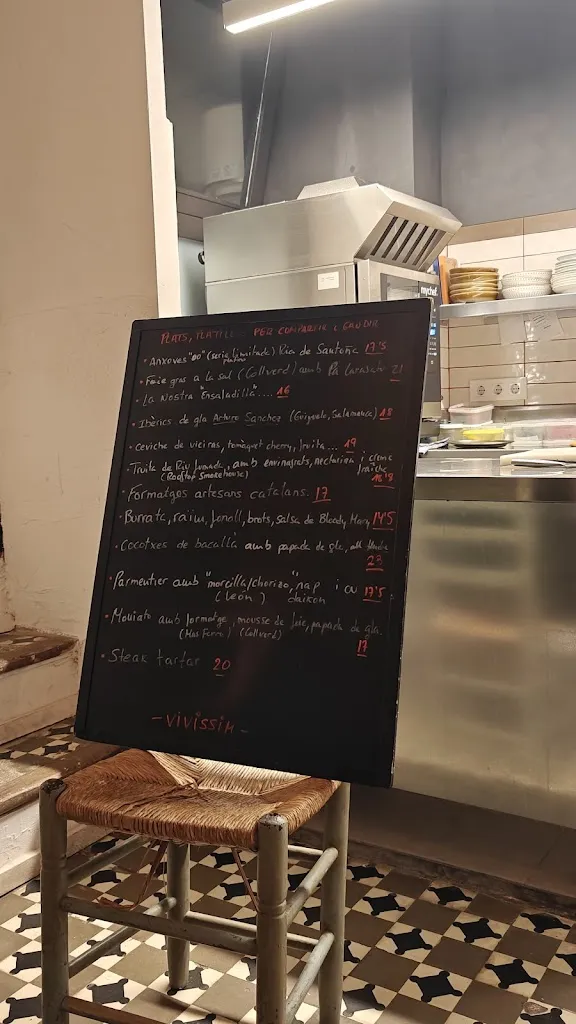 PLATS, PLATILLS PER COMPARTIR I GAUDIR
· Anxoves "00" (serie limitada) Ria de Santoña 17'5
platino
· Foie gras a la sal (Collverd) amb Pa 21
· La Nostra "Ensaladilla"... 16
· Ibèrics de gla Arturo Sanchez (Guijuelo, Salamanca) 18
· Ceviche de vieires, tomàquet cherry, fruita... 19
· Truita de Riu fumada, amb envinagrats, nectarina i crème
(Rooftop Smokehouse) fraîche
16'8
· Formatges artesans catalans. 17
· Burrata, raïm, fonoll, brots, salsa de Bloody Mary 14'5
· Cocotxes de bacallà amb papada de gla, all
23
· Parmentier amb "morcilla/chorizo", nap i ou 17'5
(León) daikon
· Moniato amb formatge, mousse de foie, papada de gla.
(Mas Farró) (Collverd)
17
· Steak tartar 20
- VIVISSIM -
mychef